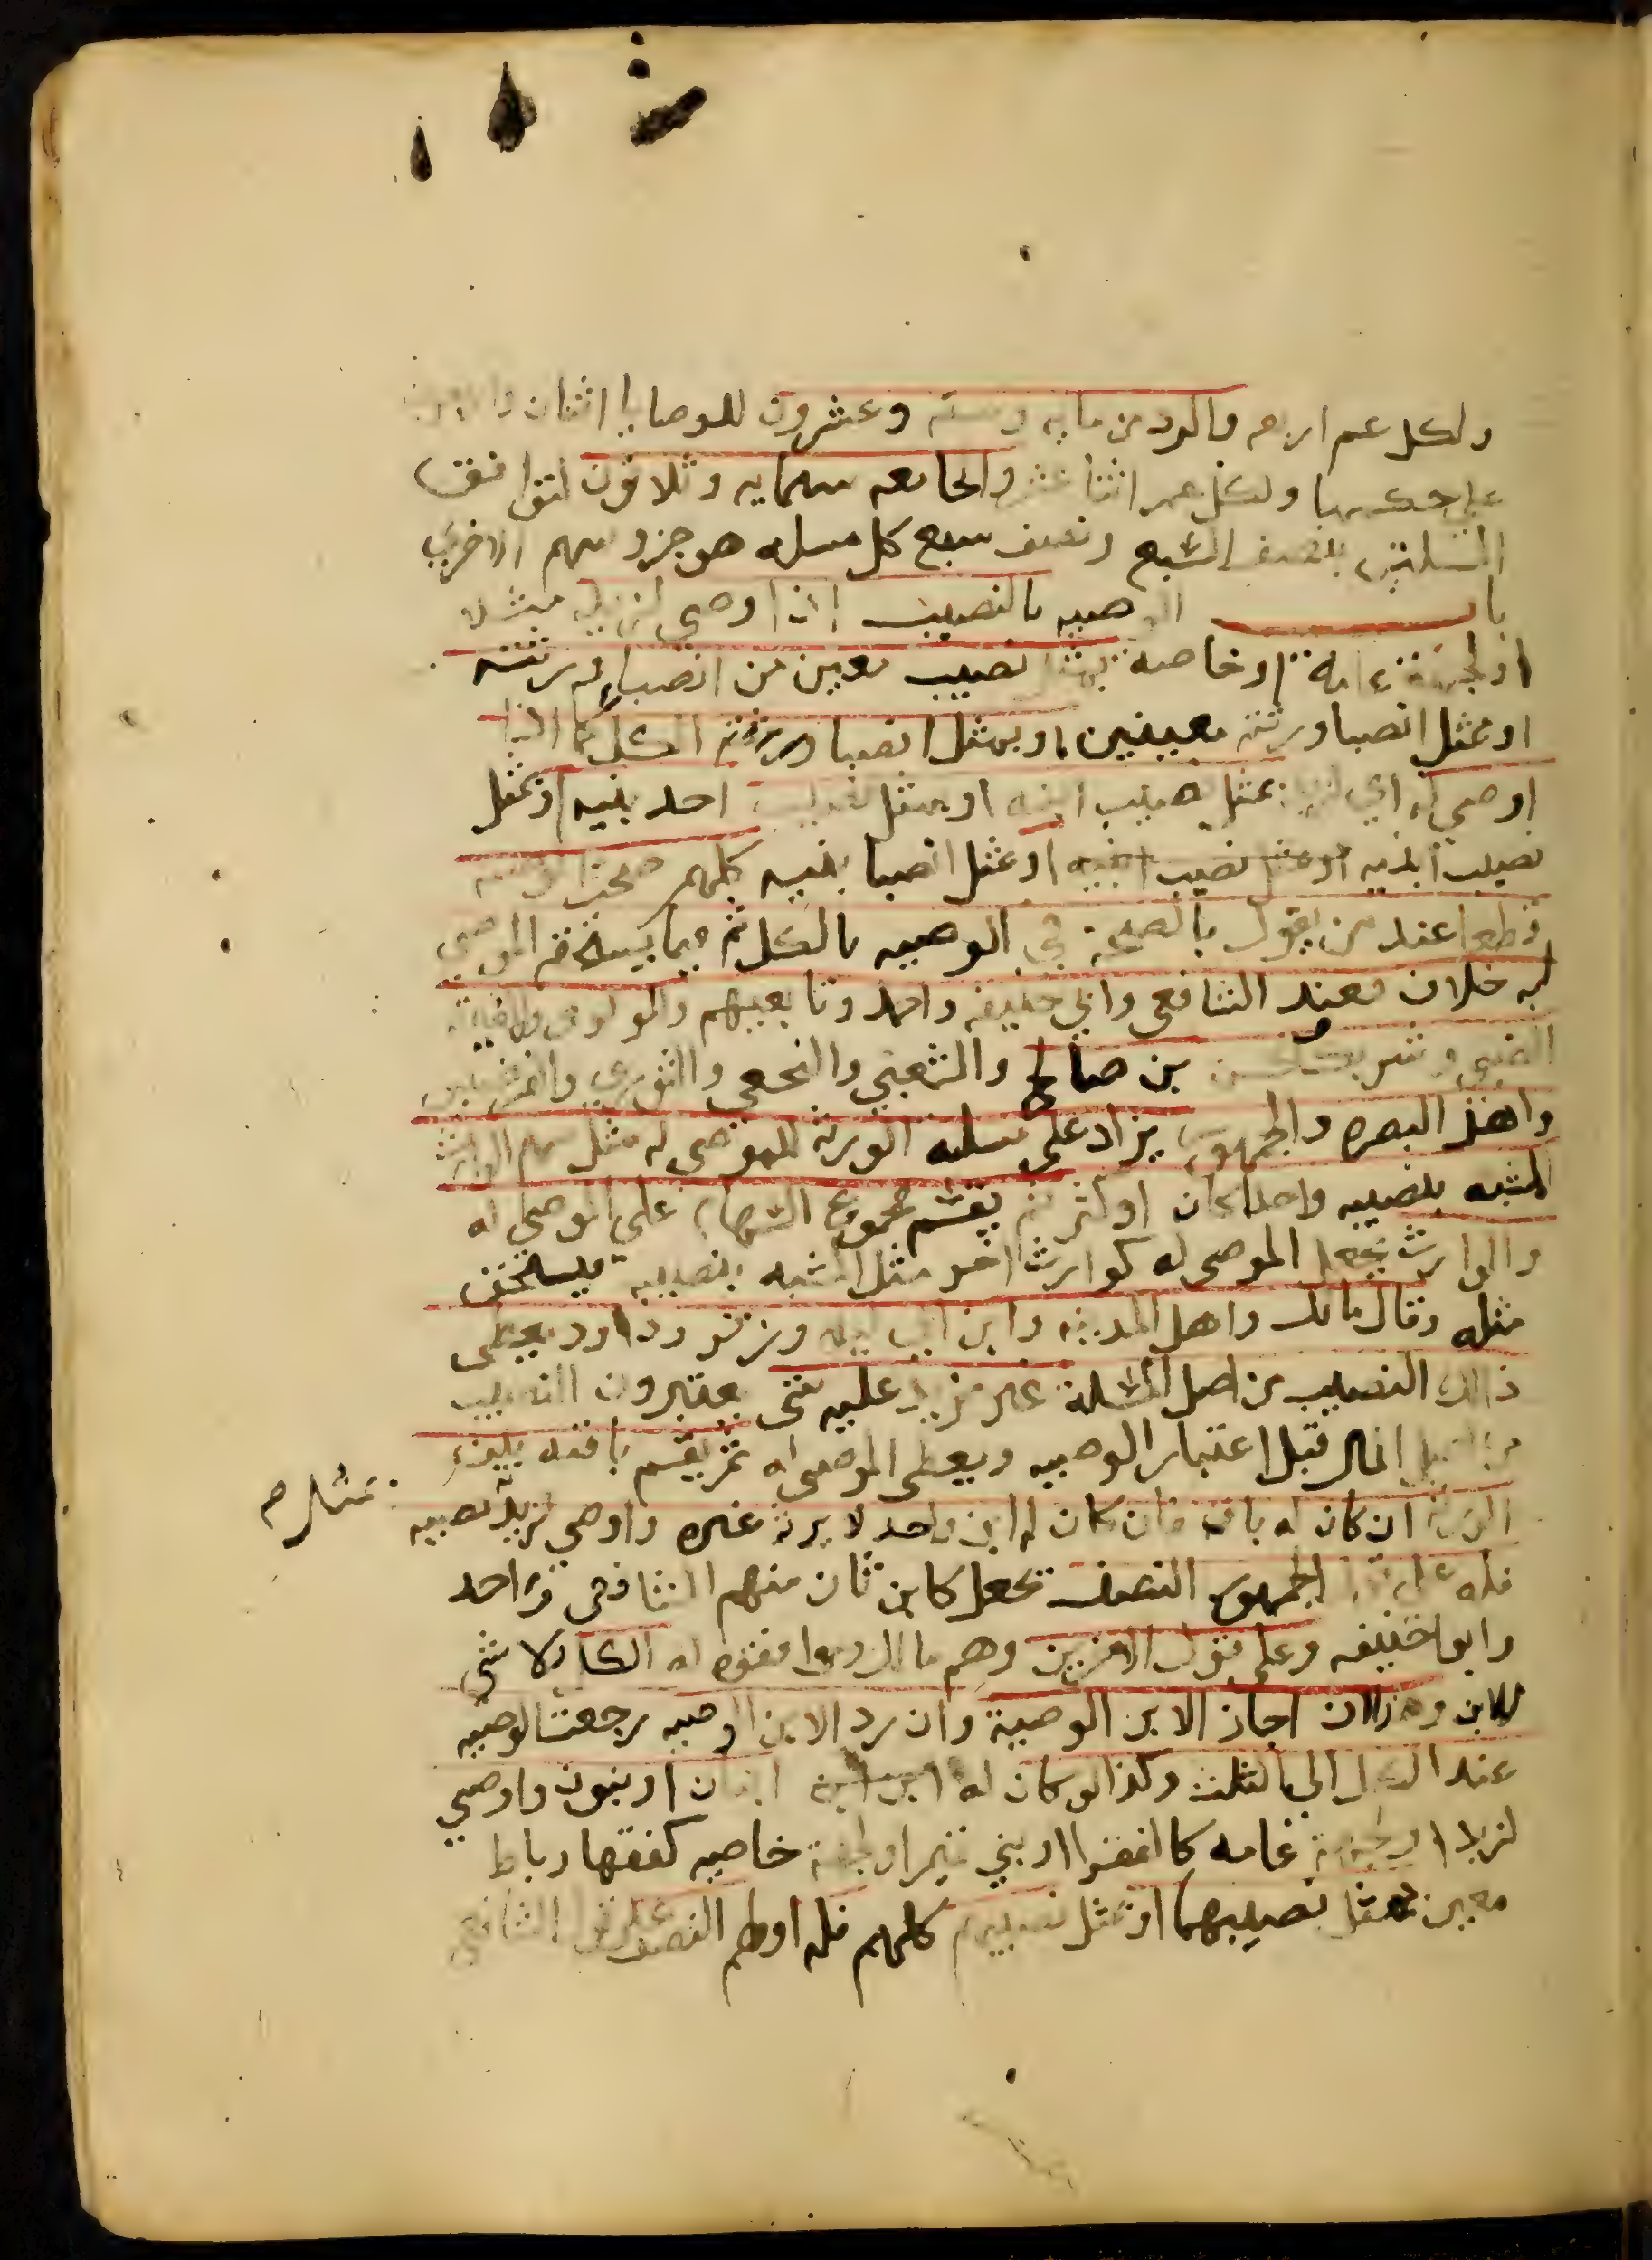 ولكل عم اربعه والرد من مايه وسته وعشرون للوصايا اثنان
ولكل عم اثنا عشر والجامعه ستمايه وثلاثون لتوافق
المسلتين بنصف السبع ونصف سبع كل مسله هو جزو سهم الاخري
باب الوصيه بالنصيب اذا اوصي لزيد مثلا
او لجهة عامة او خاصة بمثل نصيب معين من انصباء ورثته
او بمثل انصبا ورثته معينين او بمثل انصبا ورثته الكل كما اذا
اوصي له اي لزيد بمثل نصيب ابنه او بمثل نصيب احد بنيه او بمثل
نصيب ابنيه او مثل نصيب ابنيه او بمثل انصبا بنيه كلهم صحت الوصيه
قطعا عند من يقول بالصحة في الوصيه بالكل ثم فيما يستحقه الموصي
له خلاف فعند الشافعي وابي حنيفه واحمد وتابعيهم
بن صالح والشعبي والنخعي والثوري والفرضيين
واهل البصره والجمهور يزاد على مسله الورثة للموصي له مثل سهم الوارث
المشبه بنصيبه واحدا كان او اكثر ثم يقسم مجموع السهام على الموصي له
والوارث فيجعل الموصى له كوارث اخر مثل المشبه بنصيبه فيستحق
مثله وقال مالك واهل المدينه وابن ابي ليلى وزفر وداود يعطى
ذلك النصيب من اصل المسلة غير مزيد عليه شي يعتبرون النصيب
من اصل المال قبل اعتبار الوصيه ويعطى الموصى له ثم يقسم باقيه بين
الورثة ان كان له باق فان كان له ابن واحد لا يرثه غيره واوصي لزيد بمثل نصيبه
فله على قول الجمهور النصف تجعل كابن ثان منهم الشافعي واحمد
وابو حنيفه وعلى قول الاخرين وهم مالك وموافقوه له الكل ولا شي
للابن وهذا ان اجاز الابن الوصية وان رد الابن الوصيه رجعت الوصيه
عند الكل الي الثلث وكذا لو كان له ابنان او بنون واوصي
لزيد او لجهة عامه كالفقرا او بني تميم او لجهة خاصه كفقها رباط
معين بمثل نصيبهما او بمثل نصيبهم كلهم فله او لهم النصف على قول الشافعي